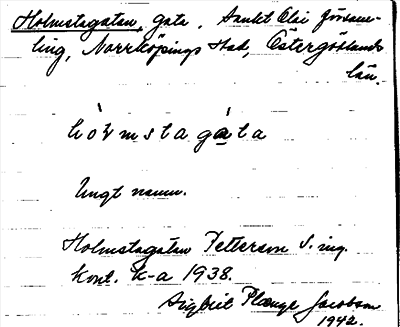 Holmstagatan, gata, Sankt Olai försam-
ling, Norrköpings stad, Östergötlands
län.
hò̀lmstagáta
Ungt namn.
Holmstagatan Petterson S. ing.
kont. K-a 1938.
Sigbrit Plænge Jacobson
1942.